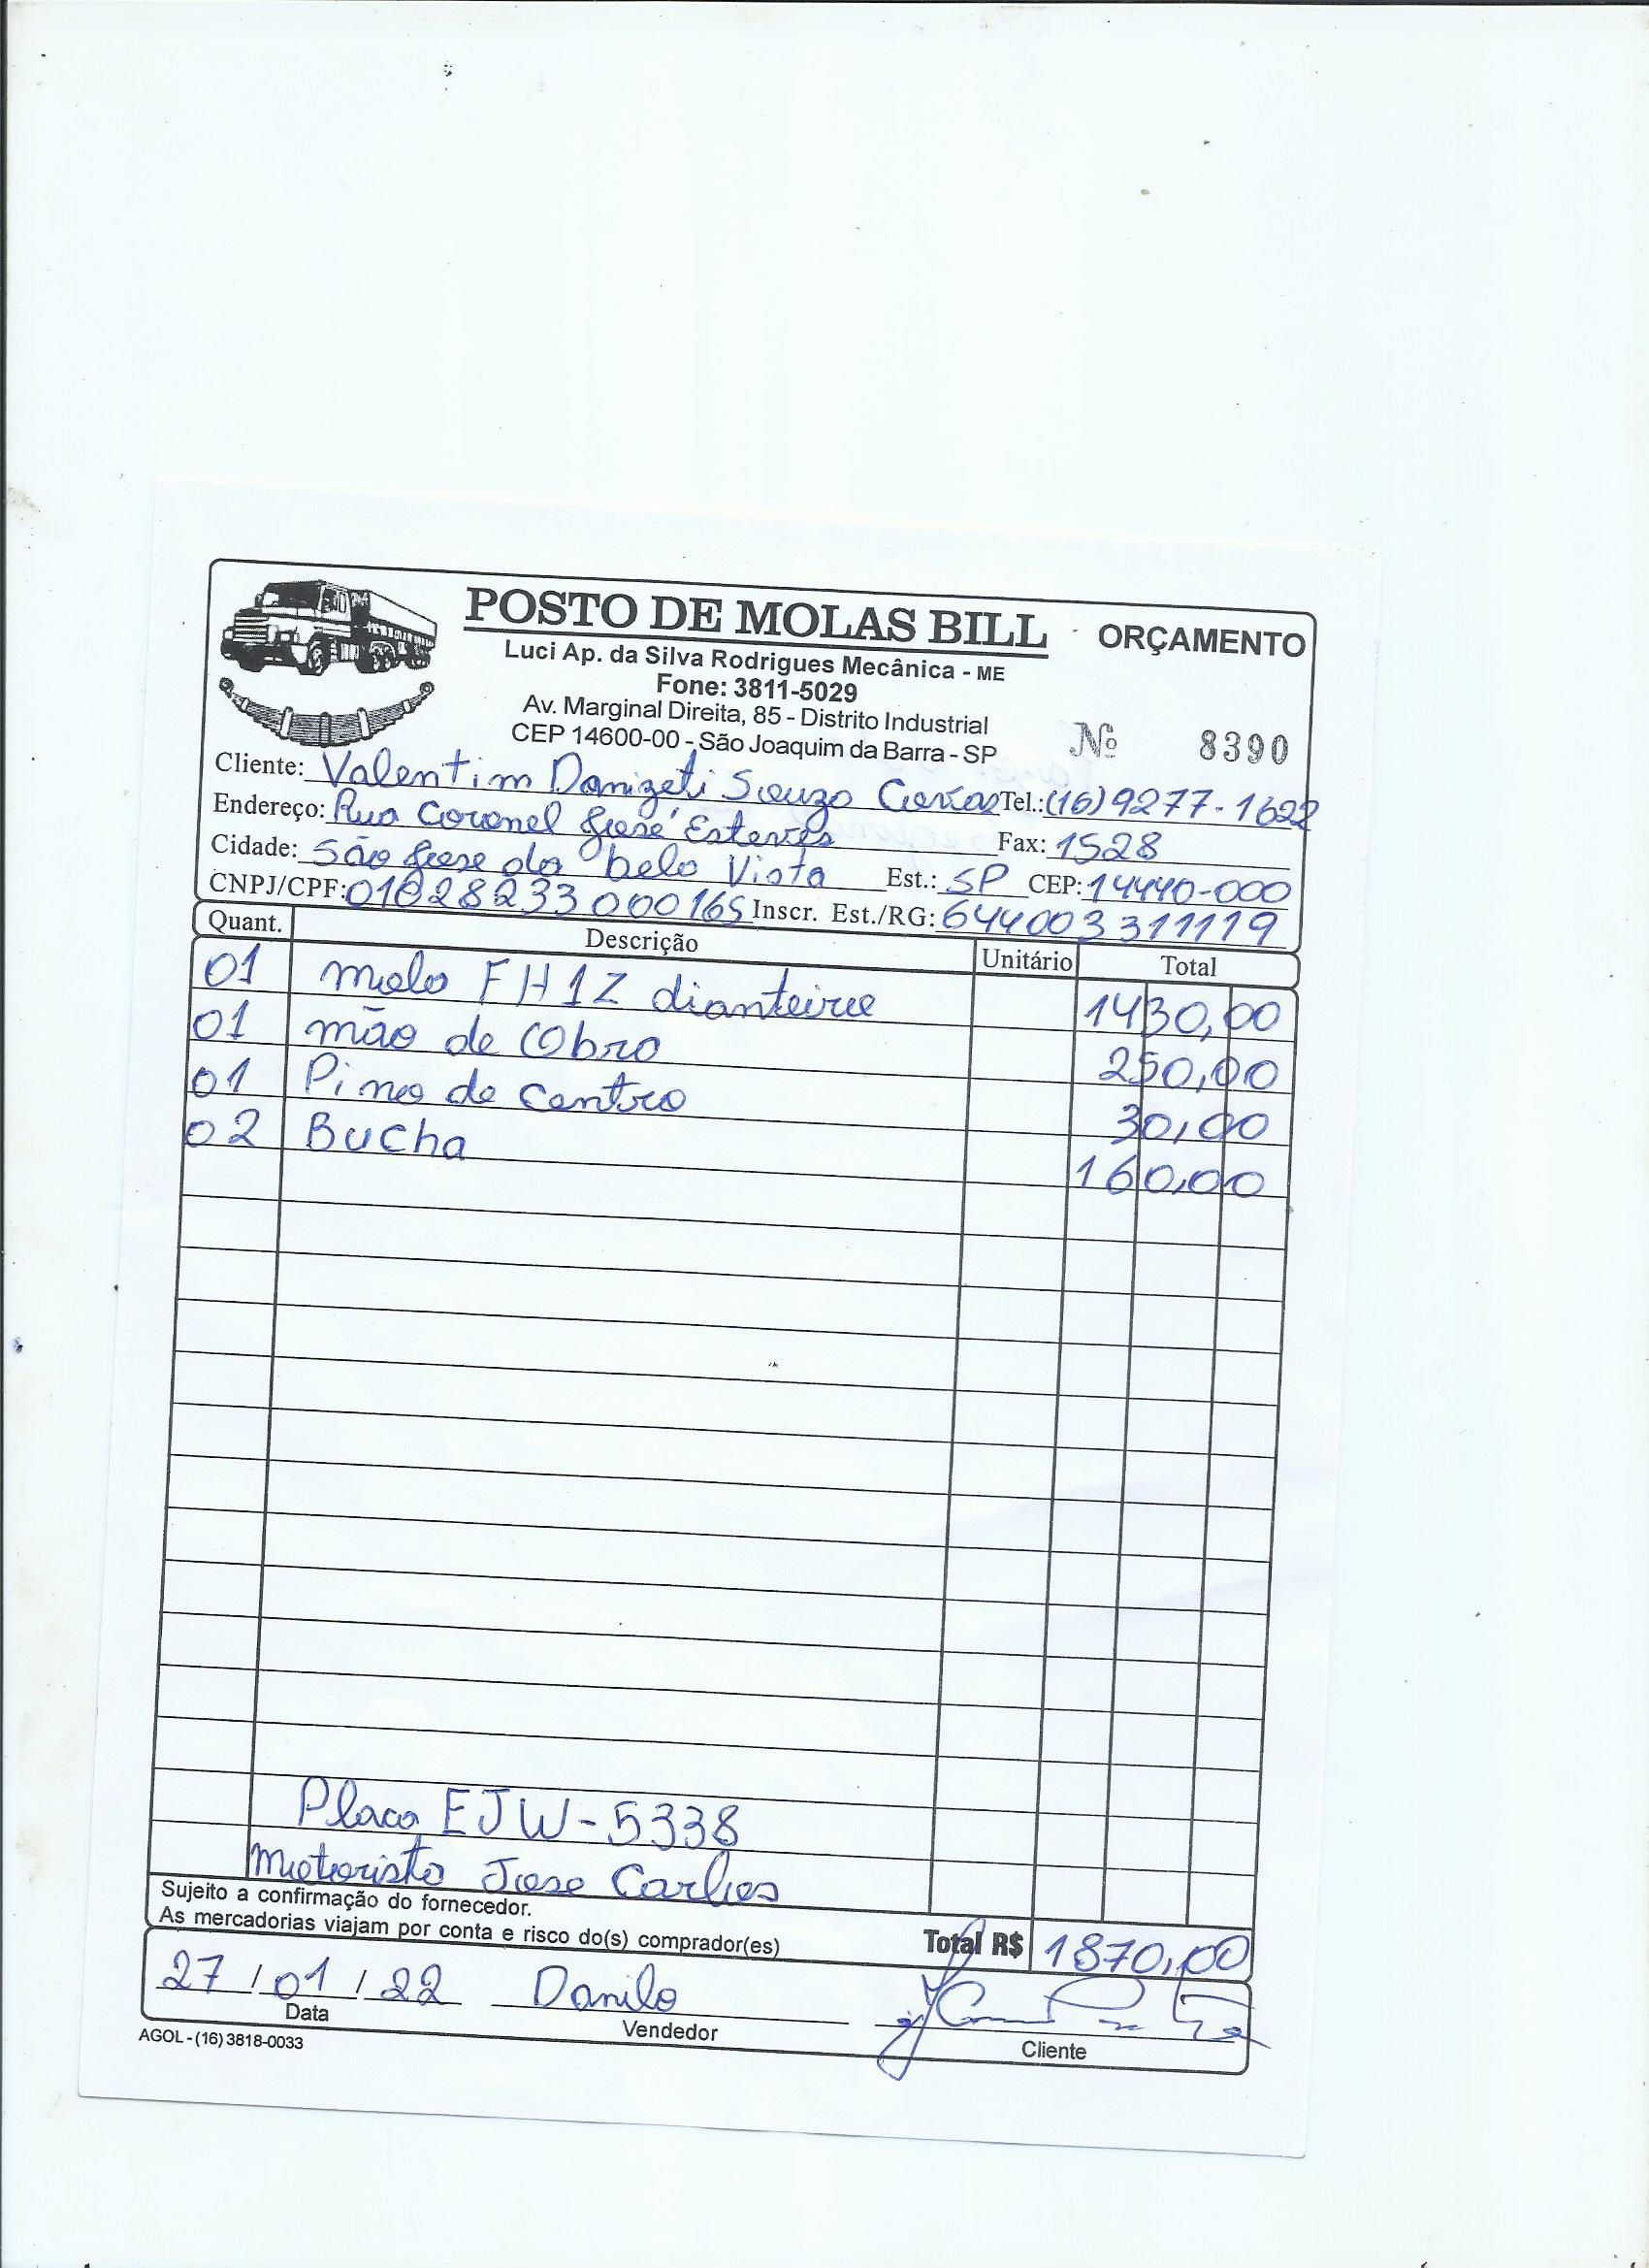 POSTO DE MOLAS BILL ORÇAMENTO
Luci Ap. da Silva Rodrigues Mecânica - ME
Fone: 3811-5029
Av. Marginal Direita, 85 - Distrito Industrial
CEP 14600-00 - São Joaquim da Barra - SP Nº 8390
Cliente: Valentim Donizeti Souza Tel.: (16) 9277-1622
Endereço: Rua Coronel José Esteves Fax: 1528
Cidade: São Jose da bela Vista Est.: SP CEP: 14440-000
CNPJ/CPF: 01028233000165 Inscr. Est./RG: 644003311119
Quant. Descrição Unitário Total
01 mola FH12 dianteira 1430,00
01 mão de Obra 250,00
01 Pino de centro 30,00
02 Bucha 160,00
Placa EJW-5338
Motorista Jose Carlos
Sujeito a confirmação do fornecedor.
As mercadorias viajam por conta e risco do(s) comprador(es) Total R$ 1870,00
27/01/22 Danilo
Data Vendedor Cliente
AGOL - (16) 3818-0033